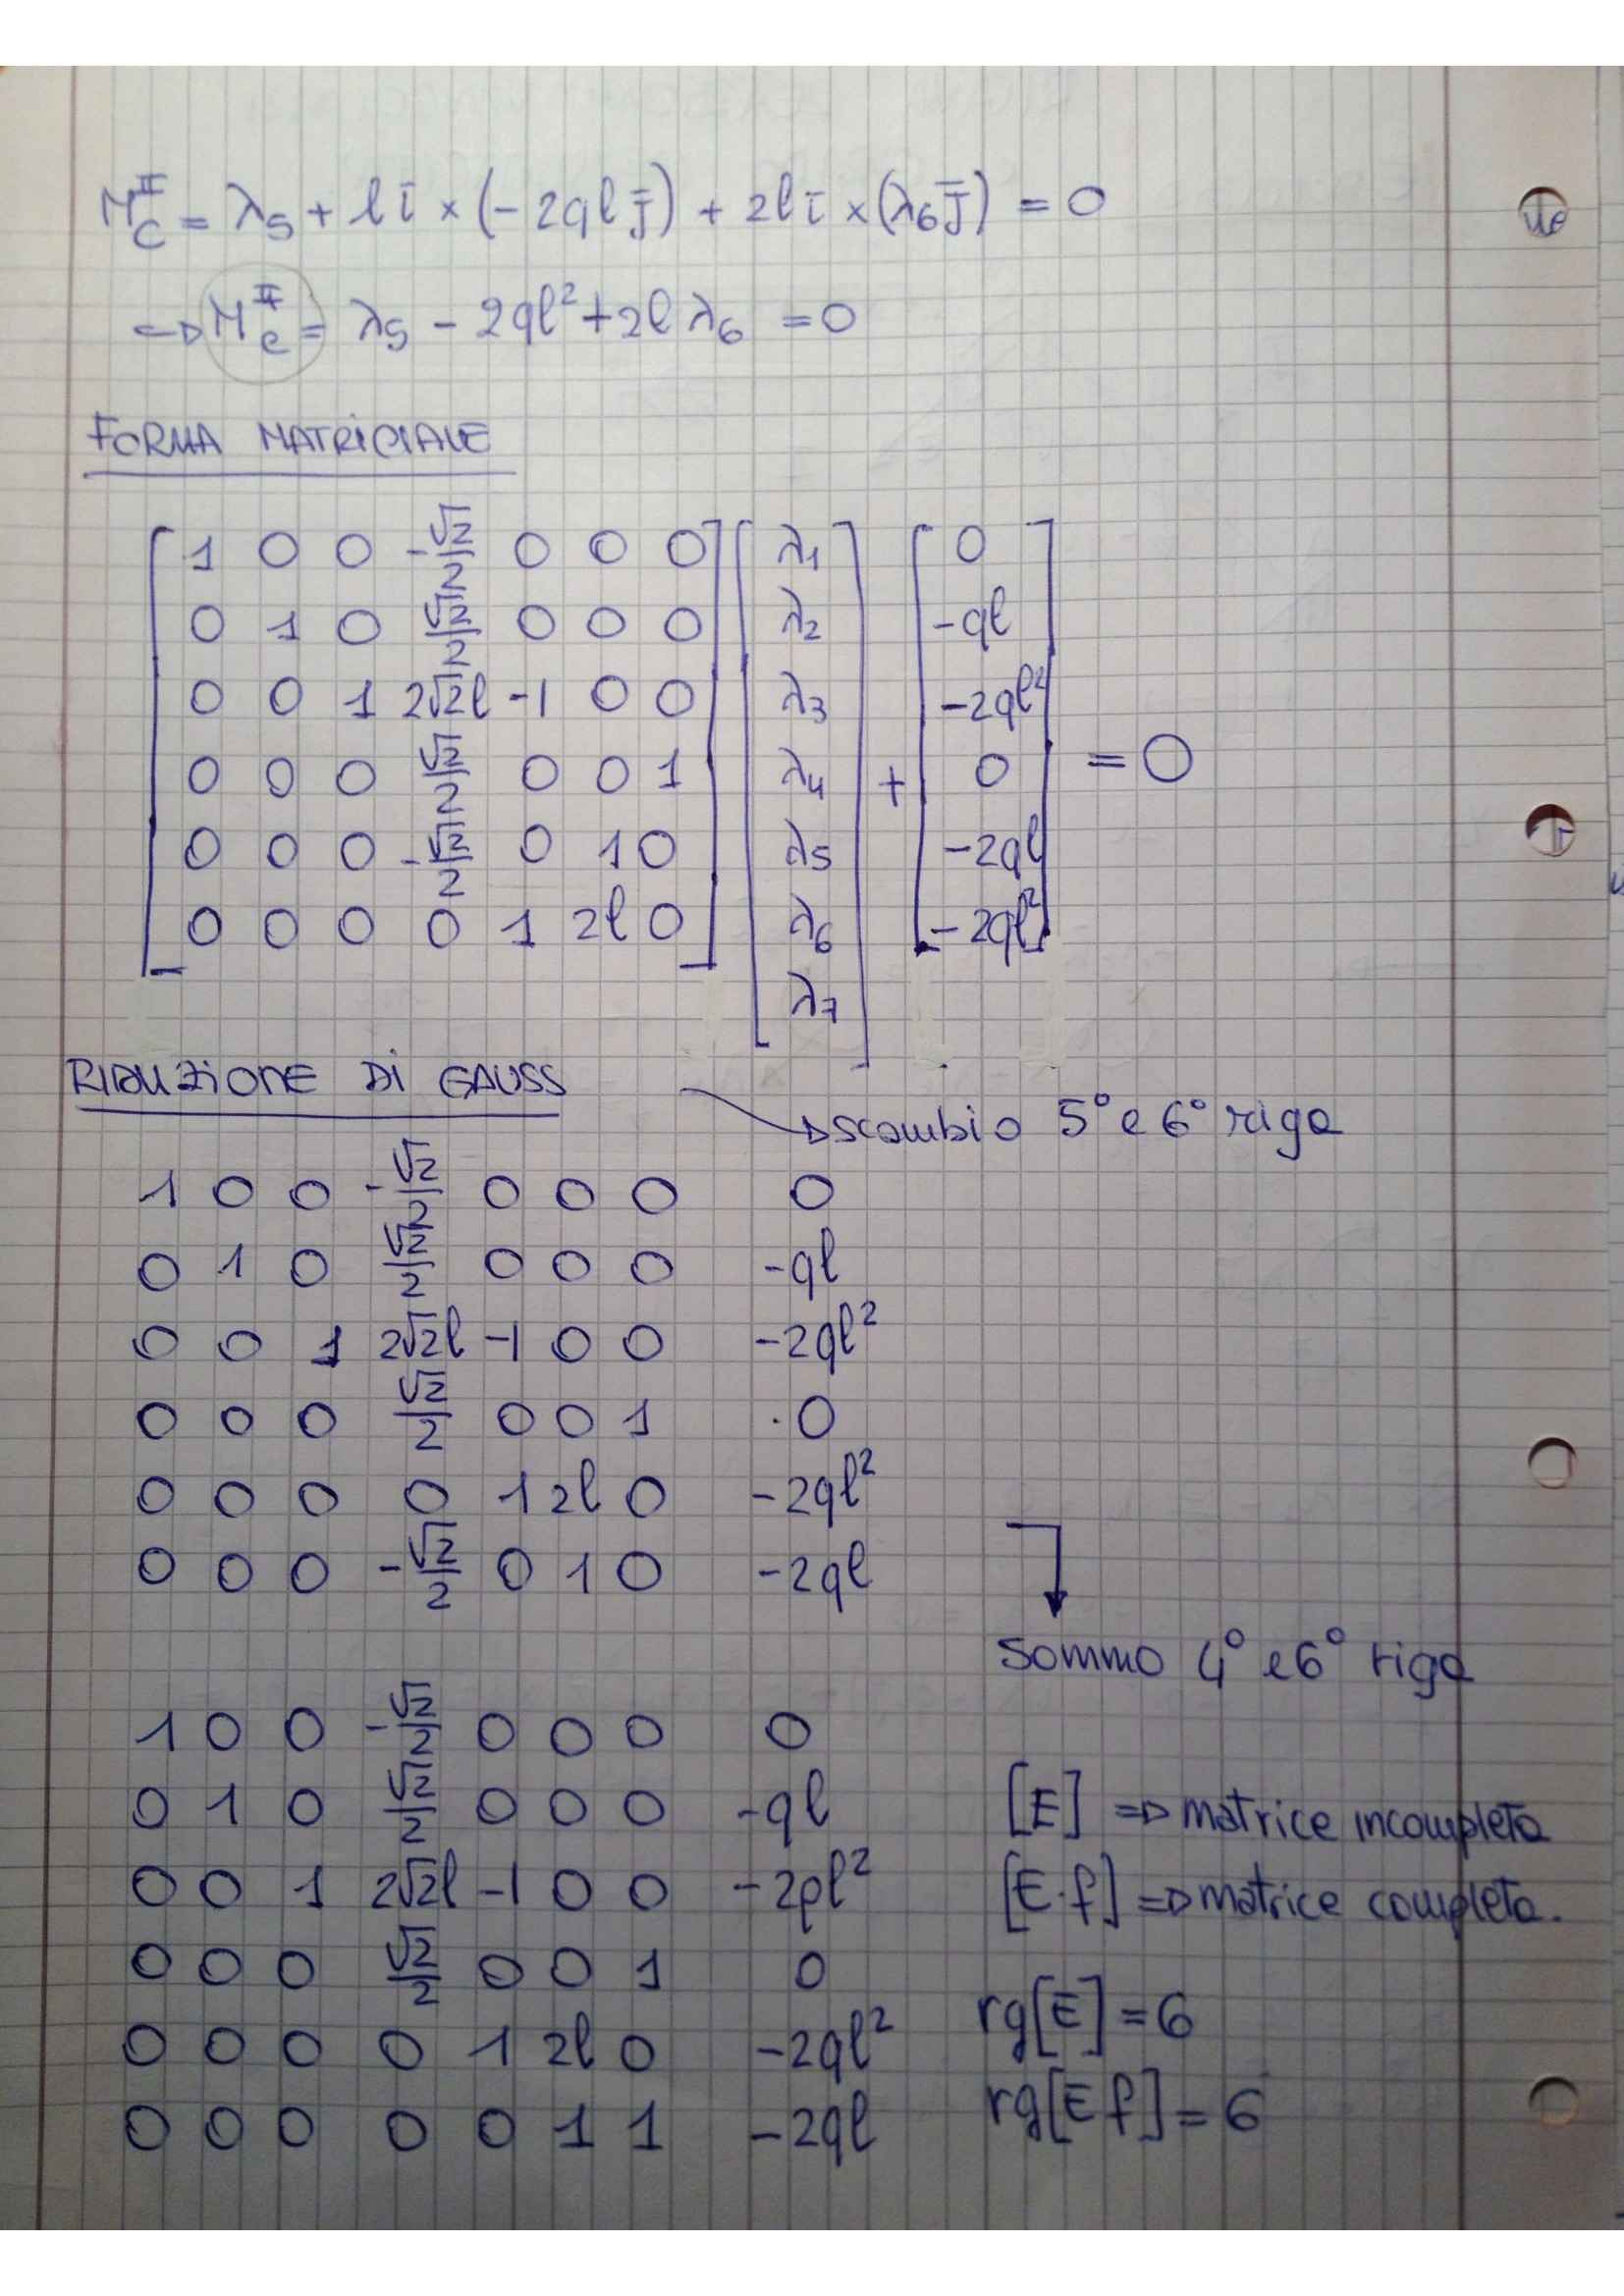 M_C^II = λ5 + l ī × (-2ql j̄) + 2l ī × (λ6 j̄) = 0
↪ M_C^II = λ5 - 2ql² + 2l λ6 = 0
FORMA MATRICIALE
[ 1 0 0 -√2/2 0 0 0 ] [ λ1 ] [ 0 ]
[ 0 1 0 √2/2 0 0 0 ] [ λ2 ] [ -ql ]
[ 0 0 1 2√2l -1 0 0 ] [ λ3 ] [ -2ql² ]
[ 0 0 0 √2/2 0 0 1 ] [ λ4 ] + [ 0 ] = 0
[ 0 0 0 -√2/2 0 1 0 ] [ λ5 ] [ -2ql ]
[ 0 0 0 0 1 2l 0 ] [ λ6 ] [ -2ql² ]
[ λ7 ]
RIDUZIONE DI GAUSS
→ scambio 5° e 6° riga
1 0 0 -√2/2 0 0 0 0
0 1 0 √2/2 0 0 0 -ql
0 0 1 2√2l -1 0 0 -2ql²
0 0 0 √2/2 0 0 1 0
0 0 0 0 1 2l 0 -2ql²
0 0 0 -√2/2 0 1 0 -2ql
Sommo 4° e 6° riga
1 0 0 -√2/2 0 0 0 0
0 1 0 √2/2 0 0 0 -ql
0 0 1 2√2l -1 0 0 -2pl²
0 0 0 √2/2 0 0 1 0
0 0 0 0 1 2l 0 -2ql²
0 0 0 0 0 1 1 -2ql
[E] ⇒ matrice incompleta
[E·f] ⇒ matrice completa.
rg[E] = 6
rg[E f] = 6